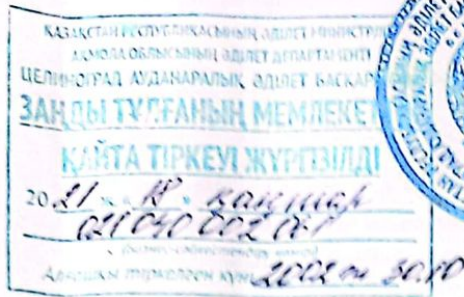 ҚАЗАҚСТАН РЕСПУБЛИКАСЫНЫҢ ӘДІЛЕТ МИНИСТРЛ
АҚМОЛА ОБЛЫСЫНЫҢ ӘДІЛЕТ ДЕПАРТАМЕНТІ
ЦЕЛИНОГРАД АУДАНАРАЛЫҚ ӘДІЛЕТ БАСҚАР
ЗАҢДЫ ТҰЛҒАНЫҢ МЕМЛЕКЕТ
ҚАЙТА ТІРКЕУІ ЖҮРГІЗІЛДІ
20 21 ж. « 18 » қаңтар
бизнес-сәйкестендіру нөмірі
Алғашқы тіркелген күні 2002 ж 30.10